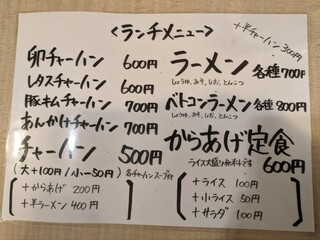 <ランチメニュー>
+半チャーハン 300円
卵チャーハン 600円
レタスチャーハン 600円
豚キムチャーハン 700円
あんかけチャーハン 700円
チャーハン 500円
(大+100円/小-50円) 各チャーハンスープ付
+からあげ 200円
+半ラーメン 400円
ラーメン 各種700円
しょうゆ、みそ、しお、とんこつ
ベトコンラーメン 各種800円
しょうゆ、みそ、しお、とんこつ
からあげ定食
ライス大盛り無料です 600円
+ライス 100円
+小ライス 50円
+サラダ 100円